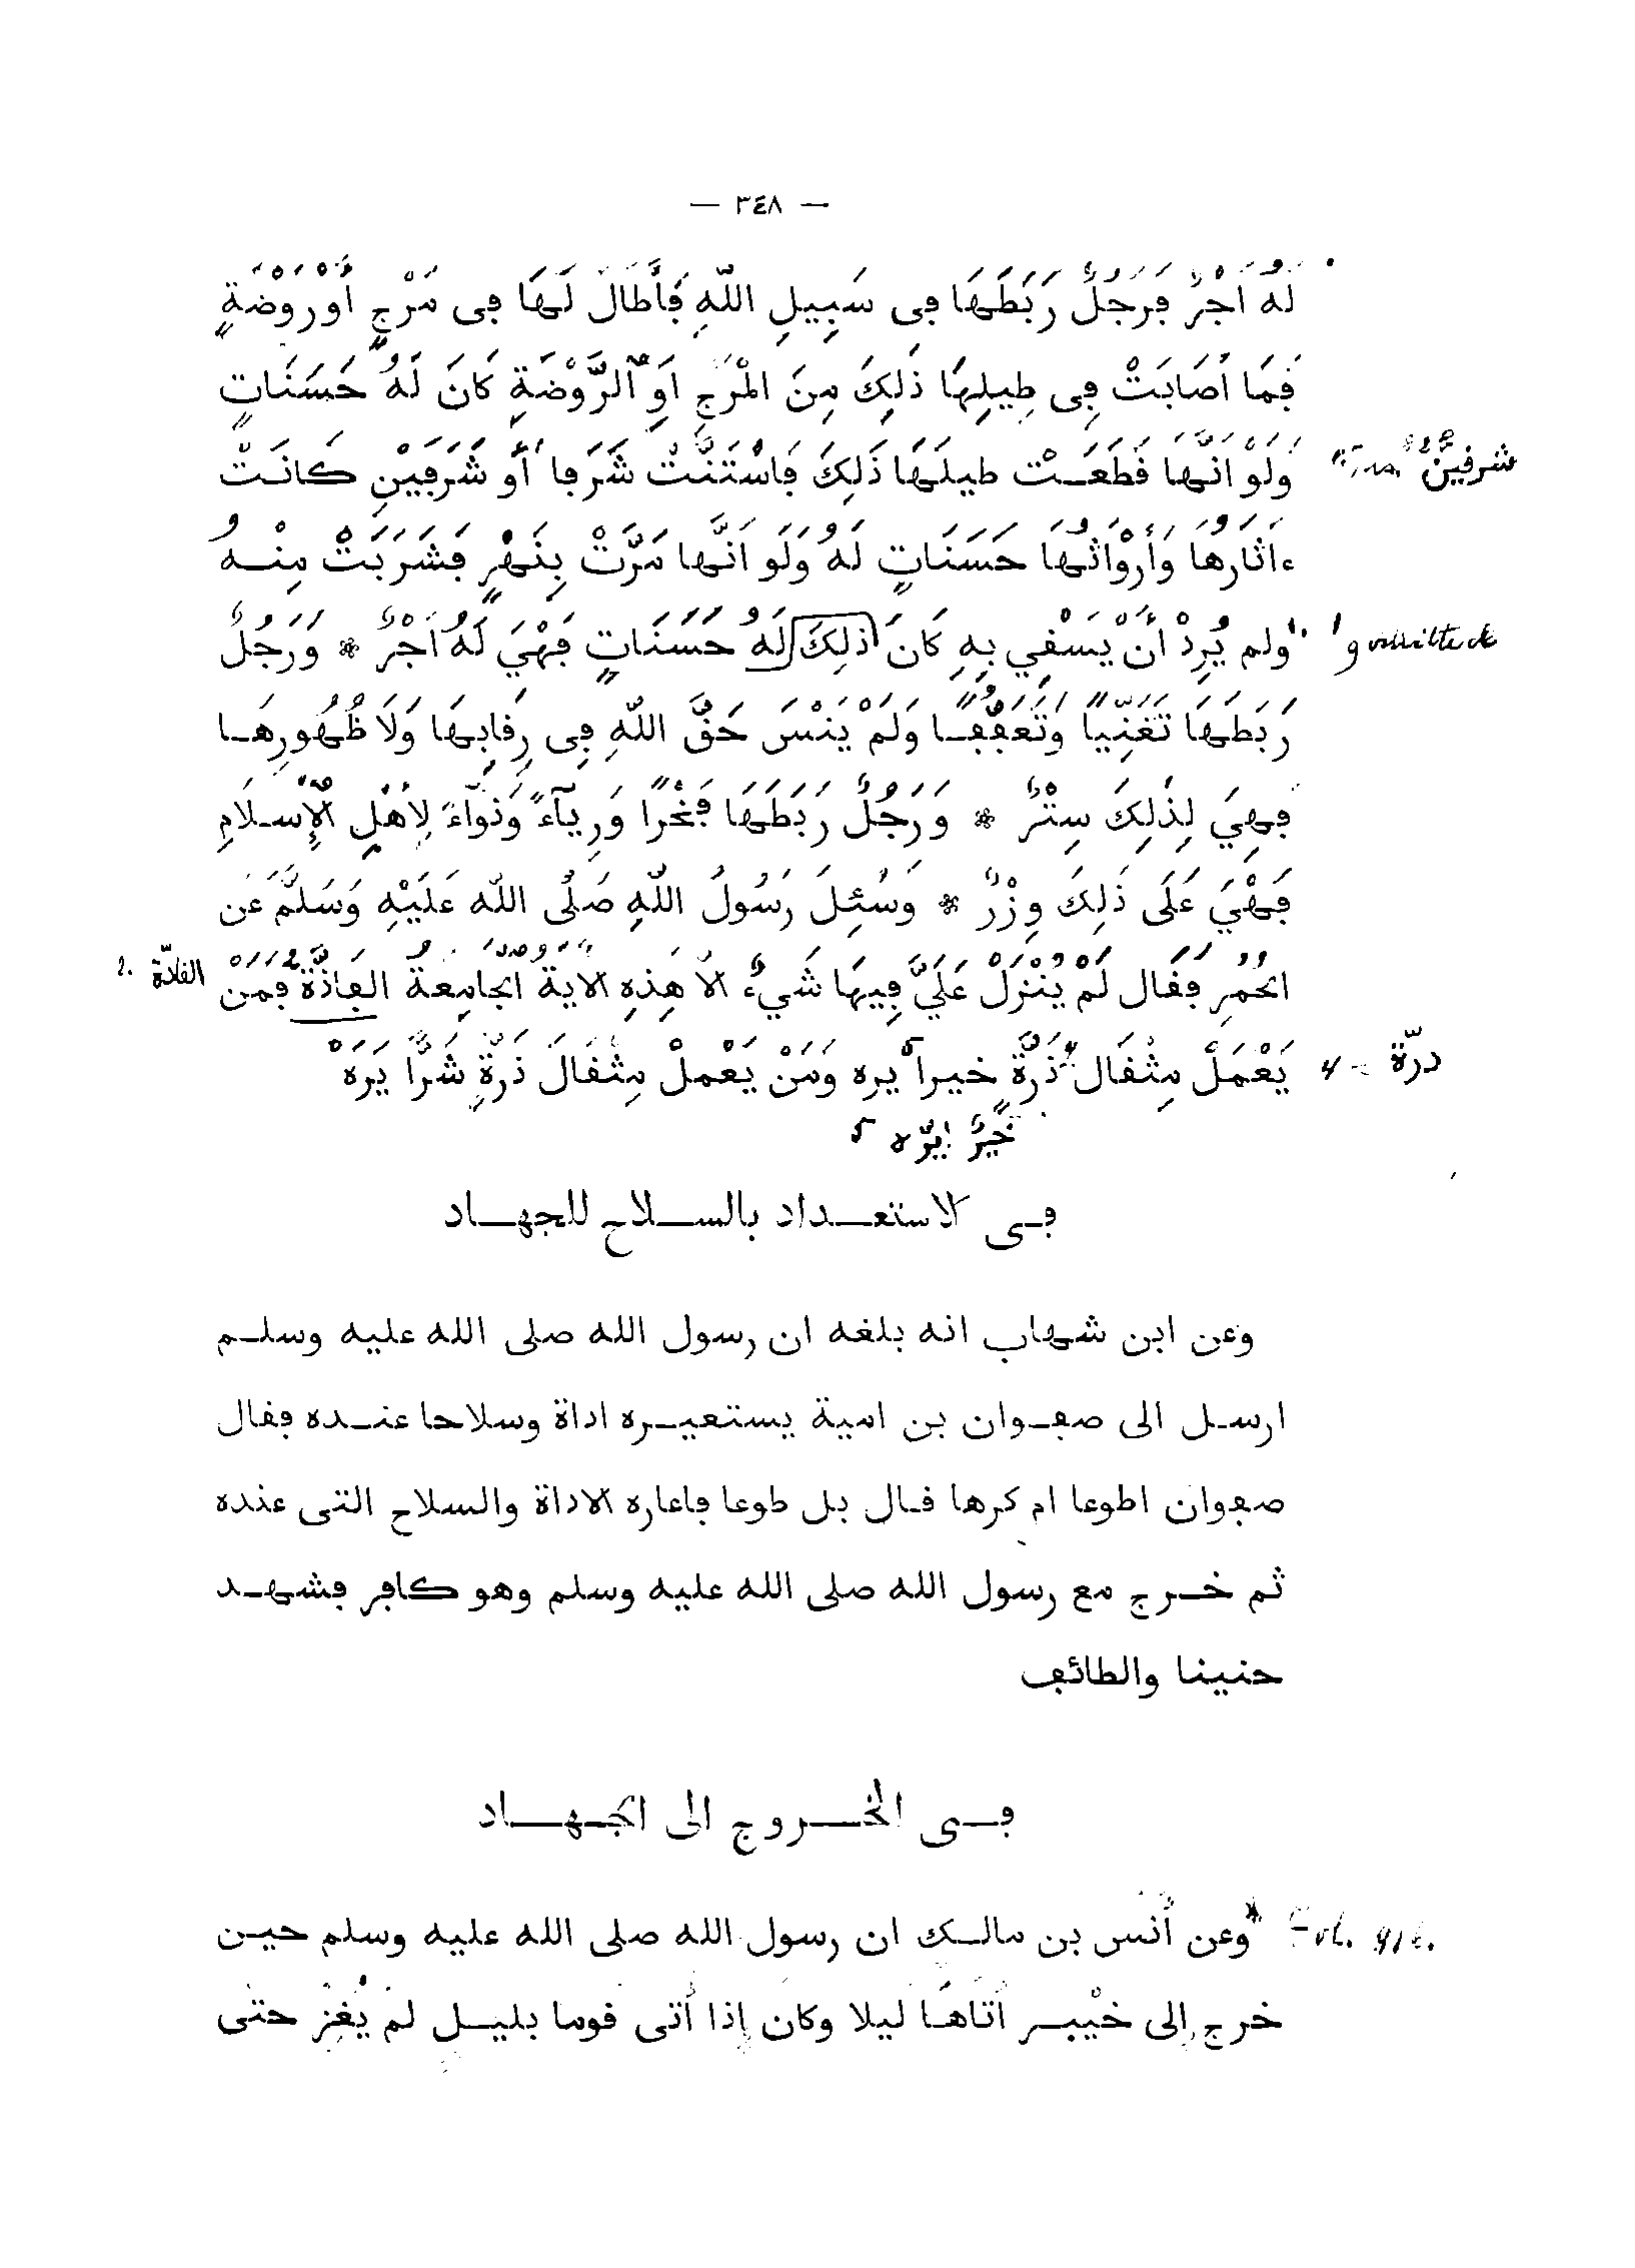 — ٣٤٨ —
لَهُ أَجْرٌ فَرَجُلٌ رَبَطَهَا فِى سَبِيلِ اللَّهِ فَأَطَالَ لَهَا فِى مَرْجٍ أَوْ رَوْضَةٍ
فَمَا أَصَابَتْ فِى طِيلِهَا ذَلِكَ مِنَ الْمَرْجِ أَوِ الرَّوْضَةِ كَانَ لَهُ حَسَنَاتٍ
وَلَوْ أَنَّهَا قَطَعَتْ طِيلَهَا ذَلِكَ فَاسْتَنَّتْ شَرَفا أَو شَرَفَيْنِ كَانَتْ
ءاثَارُهَا وَأَرْوَاثُهَا حَسَنَاتٍ لَهُ وَلَو أَنَّهَا مَرَّتْ بِنَهْرٍ فَشَرَبَتْ مِنْهُ
ولم يُرِدْ أَنْ يَسْقِي بِهِ كَانَ ذَلِكَ لَهُ حَسَنَاتٍ فَهْيَ لَهُ أَجْرٌ * وَرَجُلٌ
رَبَطَهَا تَغَنِّيًا وَتَعَفُّفًا وَلَمْ يَنْسَ حَقَّ اللَّهِ فِى رِقَابِهَا وَلَا ظُهُورِهَا
فَهِيَ لِذَلِكَ سِتْرٌ * وَرَجُلٌ رَبَطَهَا فَخْرًا وَرِيَآءً وَنِوَآءً لِأَهْلِ الْإِسْلَامِ
فَهْيَ عَلَى ذَلِكَ وِزْرٌ * وَسُئِلَ رَسُولُ اللَّهِ صَلَّى اللَّه عَلَيْهِ وَسَلَّمَ عَن
الحُمُرِ فَقَال لَمْ يُنْزَلْ عَلَيَّ فِيهَا شَيءٌ الاَّ هَذِهِ الايَةُ الجَامِعَةُ الفَاذَّةُ فَمَنْ
يَعْمَلْ مِثْقَال ذَرَّةٍ خيرا يره وَمَنْ يَعْمَلْ مِثْقَالَ ذَرَّةٍ شَرًّا يَرَهْ
فى الاستعداد بالسلاح للجهاد
وعن ابن شهاب انه بلغه ان رسول الله صلى الله عليه وسلم
ارسل الى صفوان بن امية يستعيره اداة وسلاحا عنده فقال
صفوان اطوعا ام كرها قال بل طوعا فاعاره الاداة والسلاح التى عنده
ثم خرج مع رسول الله صلى الله عليه وسلم وهو كافر فشهد
حنينا والطائف
فى الخروج الى الجهاد
وعن أنس بن مالك ان رسول الله صلى الله عليه وسلم حين
خرج إلى خيبر أتاهَا ليلا وكان إذا أتى قوما بليل لم يُغِرْ حتى
شرفين
الفاذّة
ذرّة
خَيْرًا يَرَه